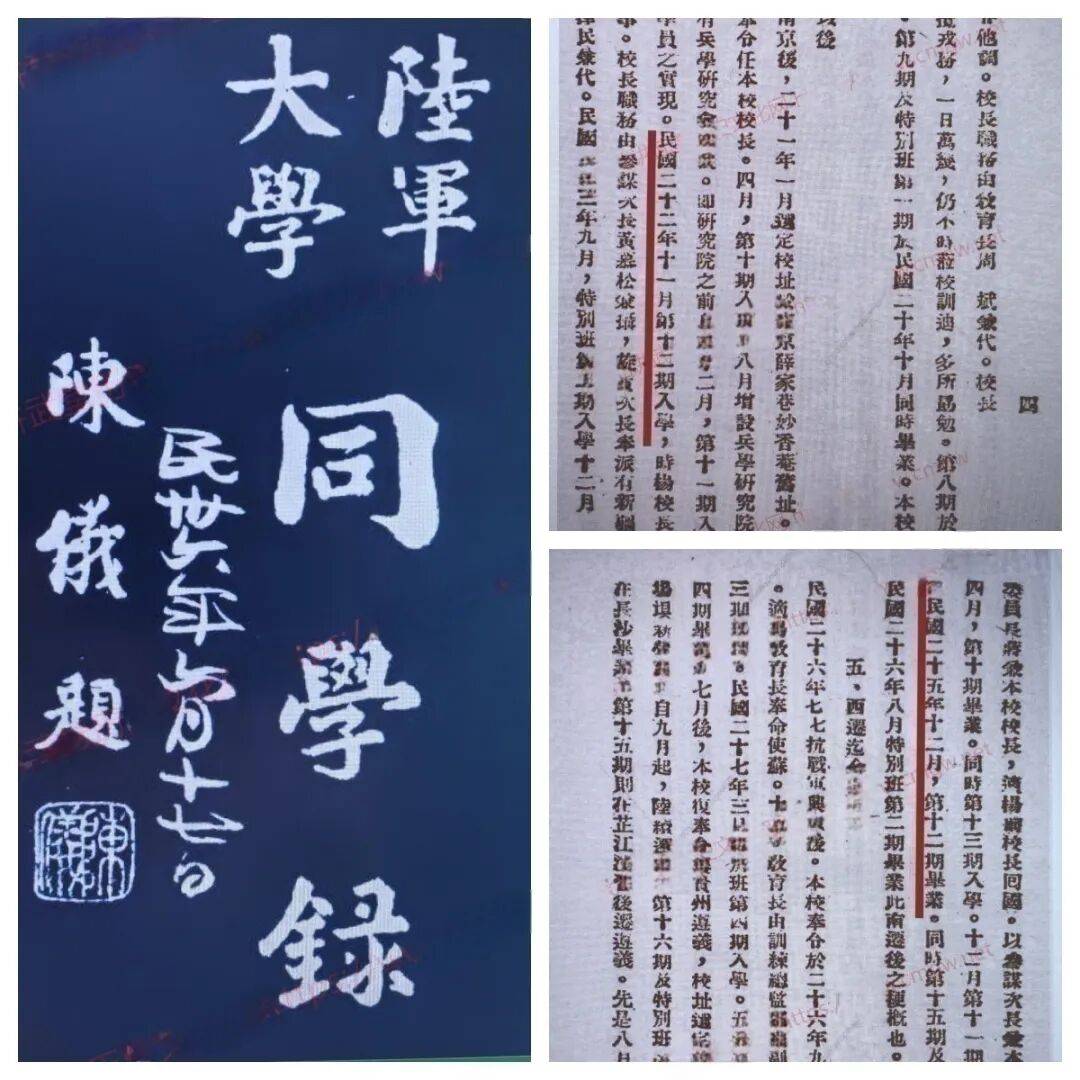 陸軍
大學
同學錄
民卅六年六月十七日
陳儀題
四
他調。校長職務由教育長周 斌兼代。校長
戎務,一日萬幾,仍不時蒞校訓迪,多所勗勉。第八期於
。第九期及特別班第一期於民國二十年十月同時畢業。本校
後
南京後,二十一年一月選定校址於南京薛家巷妙香菴舊址。
奉令任本校校長。四月,第十期入 八月增設兵學研究院
有兵學研究會 。即研究院之前身 二月,第十一期入
員之實現。民國二十二年十一月第十二期入學,時楊校長
。校長職務由參謀次長黃慕松兼攝,旋 次長奉派有新疆
澤民兼代。民國 三年九月,特別班第二期入學十二月
委員長蔣兼本校校長,適楊前校長回國。以參謀次長兼本
四月,第十期畢業。同時第十三期入學。十二月第十一期
民國二十五年十二月,第十二期畢業。同時第十五期及
民國二十六年八月特別班第二期畢業此南遷後之梗概也。
五、西遷迄今
民國二十六年七七抗戰軍興 後。本校奉令於二十六年九
。適 教育長奉命使蘇。 教育長由訓練總監部副
三期 。民國二十七年三月特別班第四期入學。五
四期畢業 七月後,本校復奉令遷貴州遵義,校址選定
自九月起,陸續遷 第十六期及特別班
在長沙畢業 第十五期則在芷江 後遷遵義。先是八月